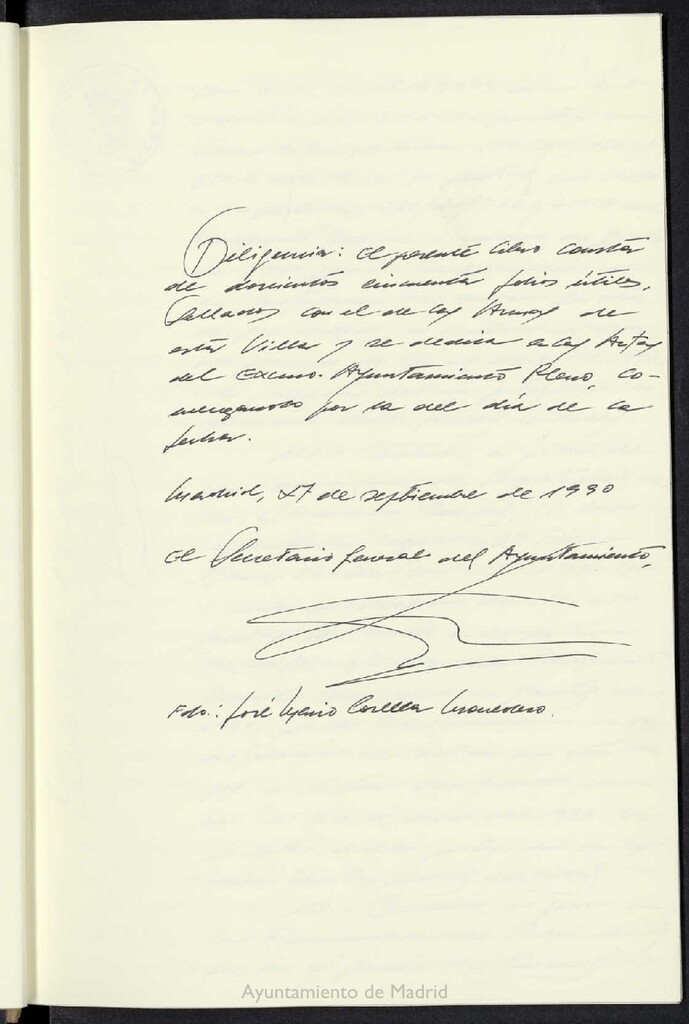 Diligencia: El presente Libro consta
de doscientos cincuenta folios útiles,
sellados con el de las Armas de
esta Villa y se destina a las Actas
del Excmo. Ayuntamiento Pleno, co-
menzando por la del día de la
fecha.
Madrid, 27 de septiembre de 1990
El Secretario General del Ayuntamiento,
Fdo.: José Corella
Ayuntamiento de Madrid